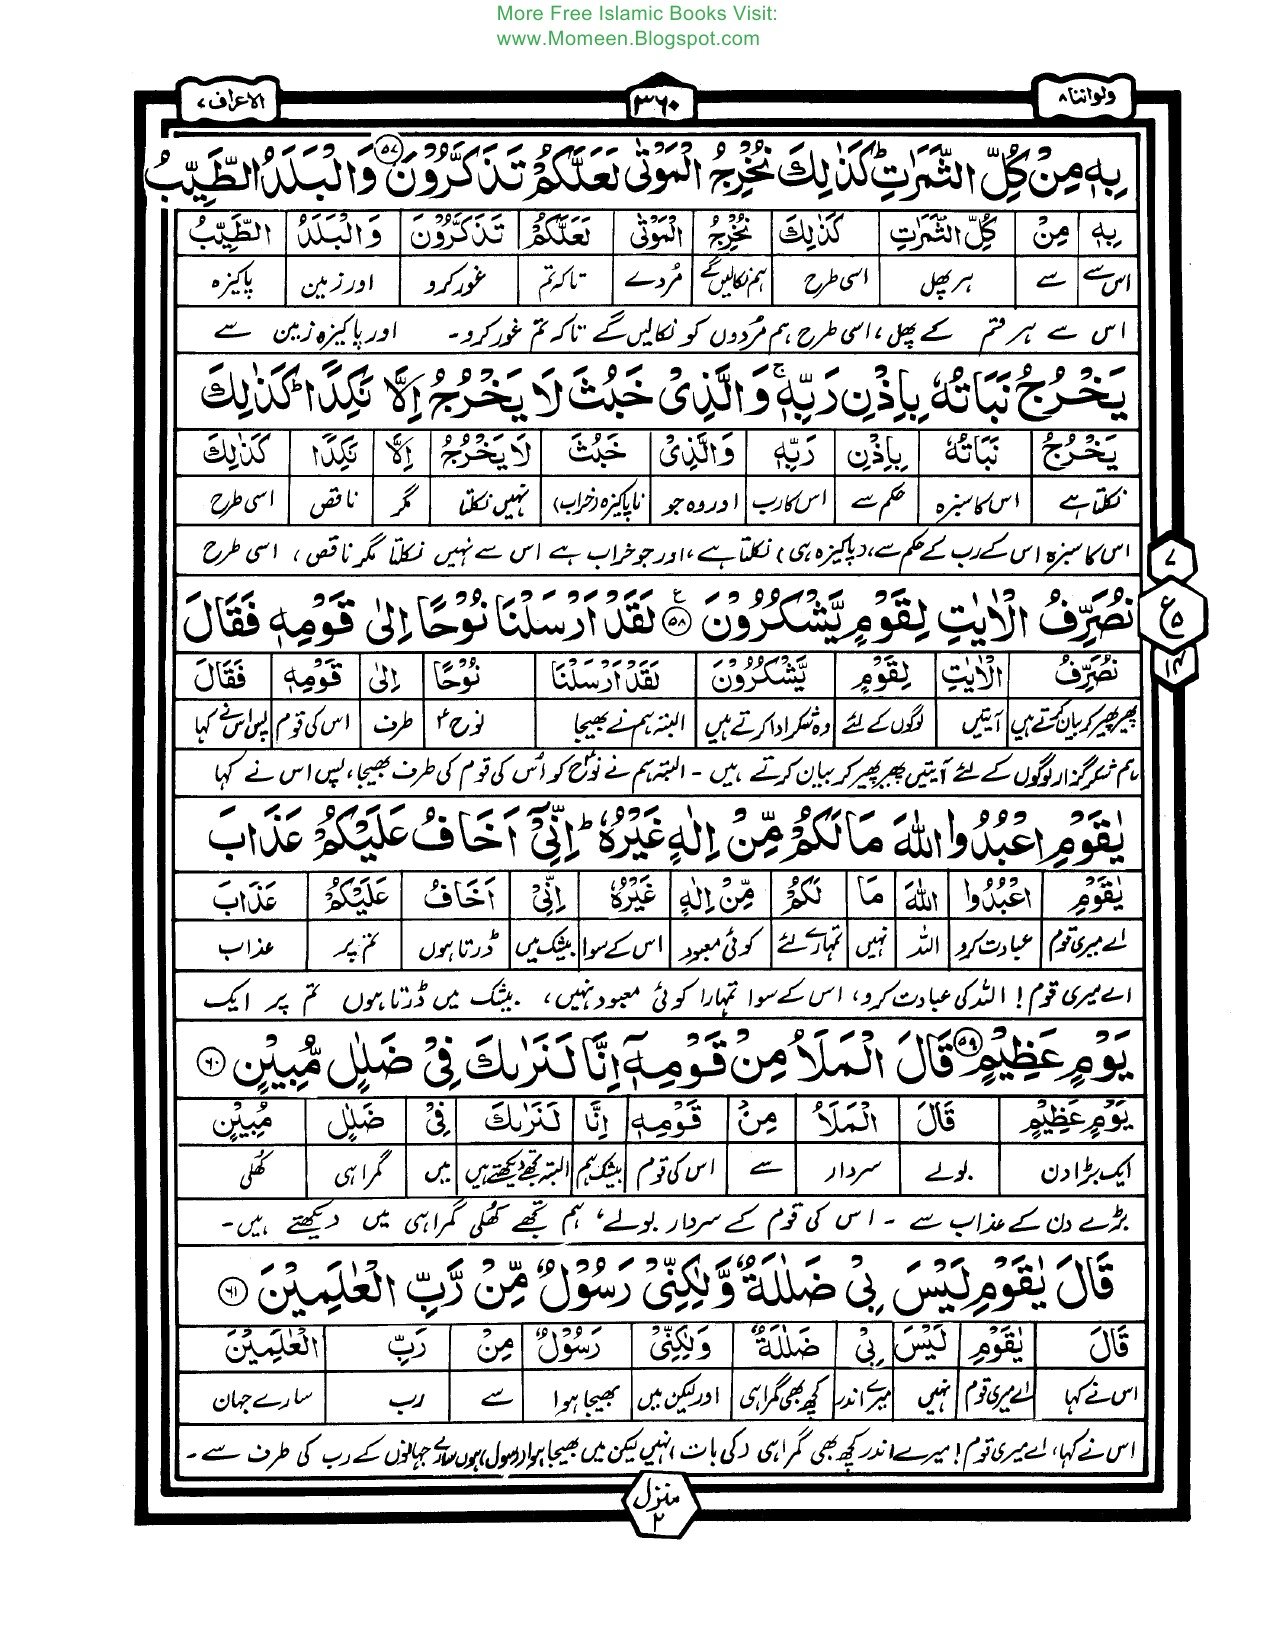 More Free Islamic Books Visit:
www.Momeen.Blogspot.com
ولواننا ۸ ۳۶۰ الاعراف ۷
بِهٖ مِنْ كُلِّ الثَّمَرٰتِ ؕ كَذٰلِكَ نُخْرِجُ الْمَوْتٰى لَعَلَّكُمْ تَذَكَّرُوْنَ ﴿۵۷﴾ وَالْبَلَدُ الطَّيِّبُ
بِهٖ مِنْ كُلِّ الثَّمَرٰتِ كَذٰلِكَ نُخْرِجُ الْمَوْتٰى لَعَلَّكُمْ تَذَكَّرُوْنَ وَالْبَلَدُ الطَّيِّبُ
اس سے سے ہر پھل اسی طرح ہم نکالیں گے مُردے تاکہ تم غور کرو اور زمین پاکیزہ
اس سے ہر قسم کے پھل، اسی طرح ہم مُردوں کو نکالیں گے تاکہ تم غور کرو۔ اور پاکیزہ زمین سے
يَخْرُجُ نَبَاتُهٗ بِاِذْنِ رَبِّهٖ ۚ وَالَّذِىْ خَبُثَ لَا يَخْرُجُ اِلَّا نَكِدًا ؕ كَذٰلِكَ
يَخْرُجُ نَبَاتُهٗ بِاِذْنِ رَبِّهٖ وَالَّذِىْ خَبُثَ لَا يَخْرُجُ اِلَّا نَكِدًا كَذٰلِكَ
نکلتا ہے اس کا سبزہ حکم سے اس کا رب اور وہ جو ناپاکیزہ (خراب) نہیں نکلتا مگر ناقص اسی طرح
اس کا سبزہ اس کے رب کے حکم سے، (پاکیزہ ہی) نکلتا ہے، اور جو خراب ہے اس سے نہیں نکلتا مگر ناقص، اسی طرح
۷
ع ۵
۱۴
نُصَرِّفُ الْاٰيٰتِ لِقَوْمٍ يَّشْكُرُوْنَ ﴿۵۸﴾ لَقَدْ اَرْسَلْنَا نُوْحًا اِلٰى قَوْمِهٖ فَقَالَ
نُصَرِّفُ الْاٰيٰتِ لِقَوْمٍ يَّشْكُرُوْنَ لَقَدْ اَرْسَلْنَا نُوْحًا اِلٰى قَوْمِهٖ فَقَالَ
پھیر پھیر کر بیان کرتے ہیں آیتیں لوگوں کے لئے وہ شکر ادا کرتے ہیں البتہ ہم نے بھیجا نوح ؑ طرف اس کی قوم پس اس نے کہا
ہم شکر گزار لوگوں کے لئے آیتیں پھیر پھیر کر بیان کرتے ہیں ۔ البتہ ہم نے نوحؑ کو اُس کی قوم کی طرف بھیجا، پس اس نے کہا
يٰقَوْمِ اعْبُدُوا اللّٰهَ مَا لَكُمْ مِّنْ اِلٰهٍ غَيْرُهٗ ؕ اِنِّىْۤ اَخَافُ عَلَيْكُمْ عَذَابَ
يٰقَوْمِ اعْبُدُوا اللّٰهَ مَا لَكُمْ مِّنْ اِلٰهٍ غَيْرُهٗ اِنِّىْ اَخَافُ عَلَيْكُمْ عَذَابَ
اے میری قوم عبادت کرو اللہ نہیں تمہارے لئے کوئی معبود اس کے سوا بیشک میں ڈرتا ہوں تم پر عذاب
اے میری قوم! اللہ کی عبادت کرو، اس کے سوا تمہارا کوئی معبود نہیں، بیشک میں ڈرتا ہوں تم پر ایک
يَوْمٍ عَظِيْمٍ ﴿۵۹﴾ قَالَ الْمَلَاُ مِنْ قَوْمِهٖۤ اِنَّا لَنَرٰىكَ فِىْ ضَلٰلٍ مُّبِيْنٍ ﴿۶۰﴾
يَوْمٍ عَظِيْمٍ قَالَ الْمَلَاُ مِنْ قَوْمِهٖ اِنَّا لَنَرٰىكَ فِىْ ضَلٰلٍ مُبِيْنٍ
ایک بڑا دن بولے سردار سے اس کی قوم بیشک ہم البتہ تجھے دیکھتے ہیں میں گمراہی کھلی
بڑے دن کے عذاب سے ۔ اس کی قوم کے سردار بولے، ہم تجھے کھلی گمراہی میں دیکھتے ہیں۔
قَالَ يٰقَوْمِ لَيْسَ بِىْ ضَلٰلَةٌ وَّلٰكِنِّىْ رَسُوْلٌ مِّنْ رَّبِّ الْعٰلَمِيْنَ ﴿۶۱﴾
قَالَ يٰقَوْمِ لَيْسَ بِىْ ضَلٰلَةٌ وَلٰكِنِّىْ رَسُوْلٌ مِنْ رَبِّ الْعٰلَمِيْنَ
اس نے کہا اے میری قوم نہیں میرے اندر کچھ بھی گمراہی اور لیکن میں بھیجا ہوا سے رب سارے جہان
اس نے کہا، اے میری قوم! میرے اندر کچھ بھی گمراہی (کی بات) نہیں لیکن میں بھیجا ہوا (رسول) ہوں سارے جہانوں کے رب کی طرف سے۔
منزل ۲